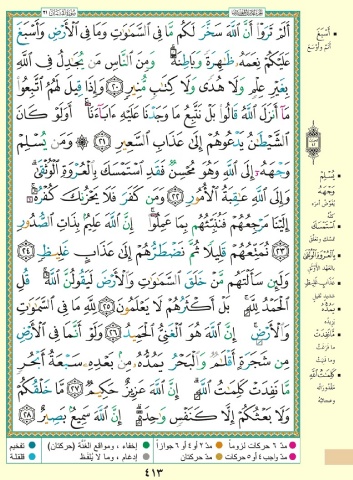 أَلَمْ تَرَوْا۟ أَنَّ ٱللَّهَ سَخَّرَ لَكُم مَّا فِى ٱلسَّمَٰوَٰتِ وَمَا فِى ٱلْأَرْضِ وَأَسْبَغَ
عَلَيْكُمْ نِعَمَهُۥ ظَٰهِرَةً وَبَاطِنَةً ۗ وَمِنَ ٱلنَّاسِ مَن يُجَٰدِلُ فِى ٱللَّهِ
بِغَيْرِ عِلْمٍ وَلَا هُدًى وَلَا كِتَٰبٍ مُّنِيرٍ ٢٠ وَإِذَا قِيلَ لَهُمُ ٱتَّبِعُوا۟
مَآ أَنزَلَ ٱللَّهُ قَالُوا۟ بَلْ نَتَّبِعُ مَا وَجَدْنَا عَلَيْهِ ءَابَآءَنَآ ۚ أَوَلَوْ كَانَ
ٱلشَّيْطَٰنُ يَدْعُوهُمْ إِلَىٰ عَذَابِ ٱلسَّعِيرِ ٢١ وَمَن يُسْلِمْ
وَجْهَهُۥٓ إِلَى ٱللَّهِ وَهُوَ مُحْسِنٌ فَقَدِ ٱسْتَمْسَكَ بِٱلْعُرْوَةِ ٱلْوُثْقَىٰ ۗ
وَإِلَى ٱللَّهِ عَٰقِبَةُ ٱلْأُمُورِ ٢٢ وَمَن كَفَرَ فَلَا يَحْزُنكَ كُفْرُهُۥٓ ۚ
إِلَيْنَا مَرْجِعُهُمْ فَنُنَبِّئُهُم بِمَا عَمِلُوٓا۟ ۚ إِنَّ ٱللَّهَ عَلِيمٌۢ بِذَاتِ ٱلصُّدُورِ
٢٣ نُمَتِّعُهُمْ قَلِيلًا ثُمَّ نَضْطَرُّهُمْ إِلَىٰ عَذَابٍ غَلِيظٍ ٢٤
وَلَئِن سَأَلْتَهُم مَّنْ خَلَقَ ٱلسَّمَٰوَٰتِ وَٱلْأَرْضَ لَيَقُولُنَّ ٱللَّهُ ۚ قُلِ
ٱلْحَمْدُ لِلَّهِ ۚ بَلْ أَكْثَرُهُمْ لَا يَعْلَمُونَ ٢٥ لِلَّهِ مَا فِى ٱلسَّمَٰوَٰتِ
وَٱلْأَرْضِ ۚ إِنَّ ٱللَّهَ هُوَ ٱلْغَنِىُّ ٱلْحَمِيدُ ٢٦ وَلَوْ أَنَّمَا فِى ٱلْأَرْضِ
مِن شَجَرَةٍ أَقْلَٰمٌ وَٱلْبَحْرُ يَمُدُّهُۥ مِنۢ بَعْدِهِۦ سَبْعَةُ أَبْحُرٍ
مَّا نَفِدَتْ كَلِمَٰتُ ٱللَّهِ ۗ إِنَّ ٱللَّهَ عَزِيزٌ حَكِيمٌ ٢٧ مَّا خَلْقُكُمْ
وَلَا بَعْثُكُمْ إِلَّا كَنَفْسٍ وَٰحِدَةٍ ۗ إِنَّ ٱللَّهَ سَمِيعٌۢ بَصِيرٌ ٢٨
أَسْبَغَ
أتم وأوسع
يُسْلِمْ
وَجْهَهُ
يفوض أمره
اسْتَمْسَكَ
تمسك وتعلق
بِالْعُرْوَةِ الْوُثْقَىٰ
بالعهد الأوثق
عَذَابٍ غَلِيظٍ
شديد ثقيل
يَمُدُّهُ
يزيده
مَا نَفِدَتْ
ما فرغت
وما فنيت
كَلِمَاتُ اللَّهِ
مقدوراته
وعجائبه
مدّ ٦ حركات لزوماً
مدّ ٢ أو ٤ أو ٦ جوازاً
إخفاء، ومواقع الغُنَّة (حركتان)
تفخيم
مدّ واجب ٤ أو ٥ حركات
مدّ حركتان
إدغام، وما لا يُلفَظ
قلقلة
٤١٣